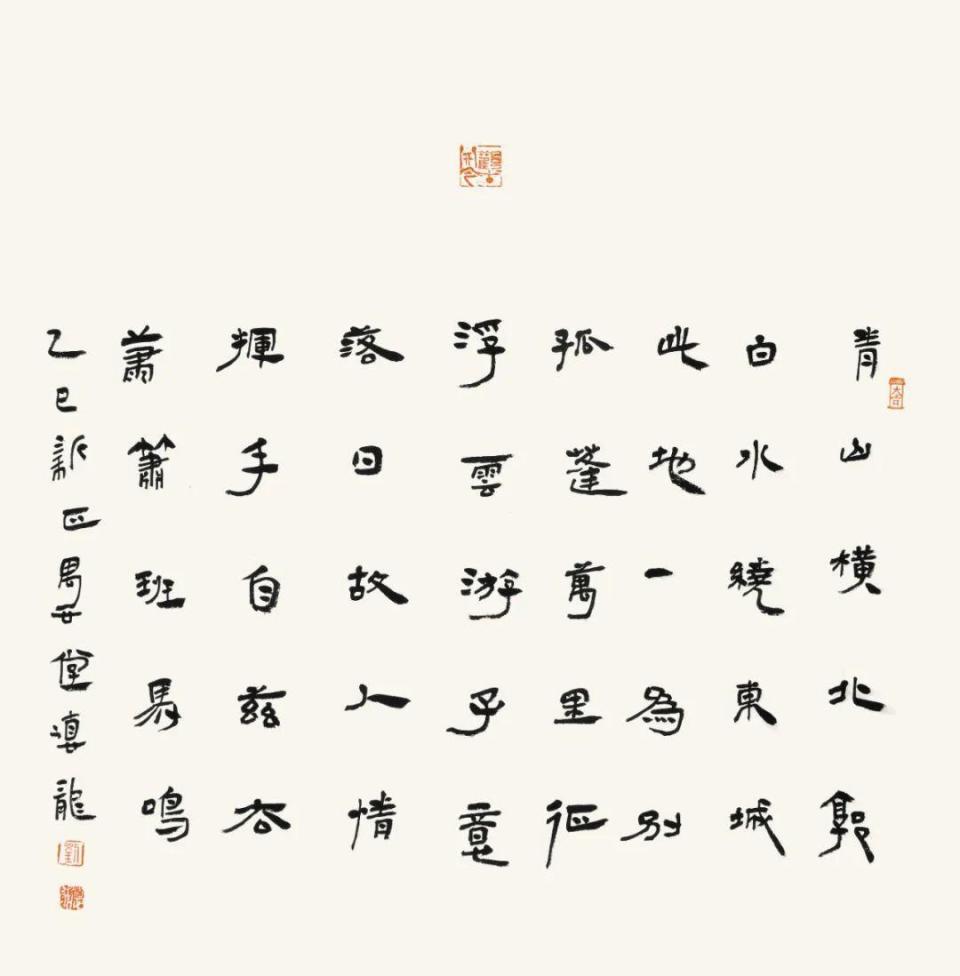 青山橫北郭
白水繞東城
此地一為別
孤蓬萬里征
浮雲游子意
落日故人情
揮手自茲厺
蕭簫班馬鳴
乙巳新正堂滇龍
劉